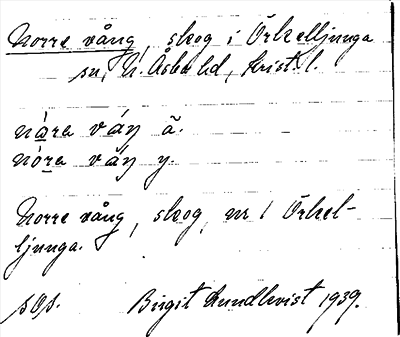 Norre vång, skog i Örkelljunga
sn, N. Åsbo hd, Krist. l.
nåra våŋ ä.
nóra våŋ y.
Norre vång, skog, nr 1 Örkel-
ljunga.
sOp. Birgit Lundkvist 1939.